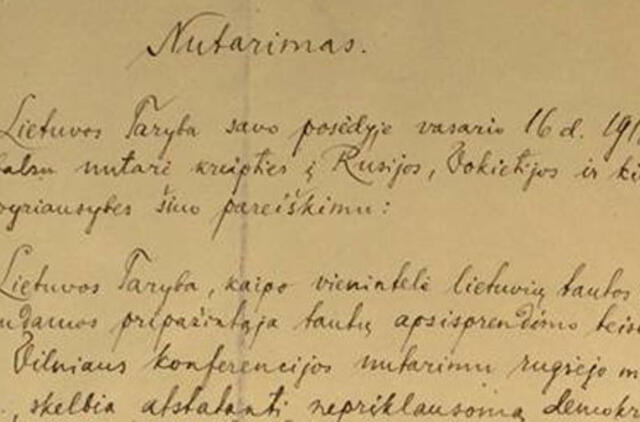 Nutarimas.
Lietuvos Taryba savo posėdyje vasario 16 d. 191
balsu nutarė kreipties į Rusijos, Vokietijos ir ki
yriausybes šiuo pareiškimu:
Lietuvos Taryba, kaipo vienintelė lietuvių tautos
mdamos pripažintąja tautų apsisprendimo teise
Vilniaus konferencijos nutarimu rugsėjo m
, skelbia atstatanti nepriklausomą demokr